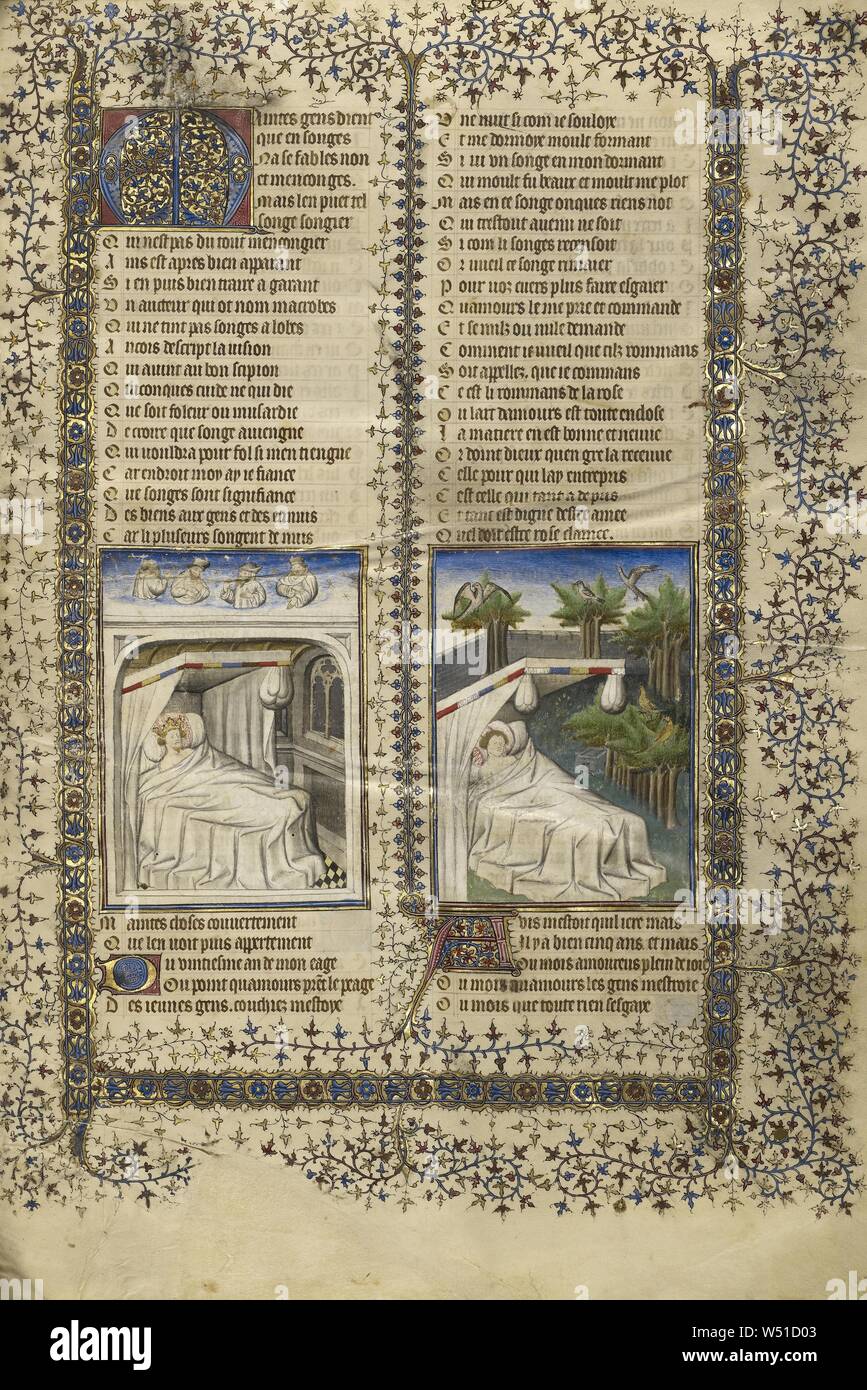 Maintes gens dient
que en songes
Na se fables non
et menconges.
mais len puet tel
songe songier
Qui nest pas du tout mencongier
Ains est apres bien apparant
Si en puis bien traire a garant
Un aucteur qui ot nom macrobes
Qui ne tint pas songes a lobes
Ancois descript la vision
Qui avint au bon scipion
Quiconques cuide ne qui die
Que soit foleur ou musardie
De croire que songe aviengne
Qui vouldra pour fol si men tiengne
Car endroit moy ay ie fiance
Que songes sont signifiance
Des biens aux gens et des ennuis
Car li pluseurs songent de nuis
Maintes choses couvertement
Que len voit puis appertement
Ou vintiesme an de mon eage
Ou point quamours prēt le peage
Des ieunes gens. couchiez mestoye
Une nuit si com ie souloye
Et me dormoye moult forment
Si vi un songe en mon dormant
Qui moult fu beaux et moult me plot
Mais en ce songe onques riens not
Qui trestout avenu ne soit
Si com li songes recensoit
Or vueil ce songe rimaier
Pour voz cuers plus faire esgaier
Quamours le me prie et commande
Et se nulz ou nulle demande
Comment ie vueil que cilz rommans
Soit appellez. que ie commans
Ce est li rommans de la rose
Ou lart damours est toute enclose
La matiere en est bonne et neuve
Or doint dieux quen gre la recueve
Celle pour qui lay entrepris
Cest celle qui tant a de pris
Et tant est digne destre amee
Quel doit estre rose clamee.
Avis mestoit quil iere mais
Il y a bien cinq ans. et mais
Ou mois amoureus plein de ioie
Ou mois quamours les gens mestroie
Ou mois que toute rien sesgaye
alamy
Image ID: W51D03
www.alamy.com